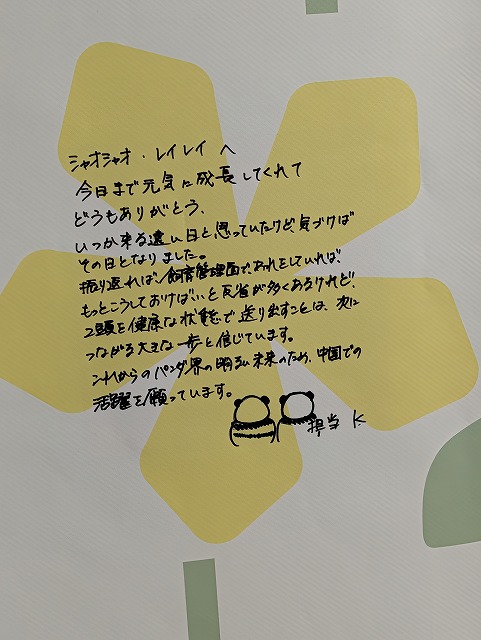 シャオシャオ・レイレイ へ
今日まで元気に成長してくれて
どうもありがとう、
いつか来る遠い日と思っていたけど、気づけば
その日となりました。
振り返れば、飼育管理面で、あれをしていれば、
もっとこうしておけば、いと反省が多くあるけれど、
2頭を健康な状態で送り出すことは、次に
つながる大きな一歩と信じています。
これからのパンダ界の明るい未来のため、中国での
活躍を願っています。
担当 K